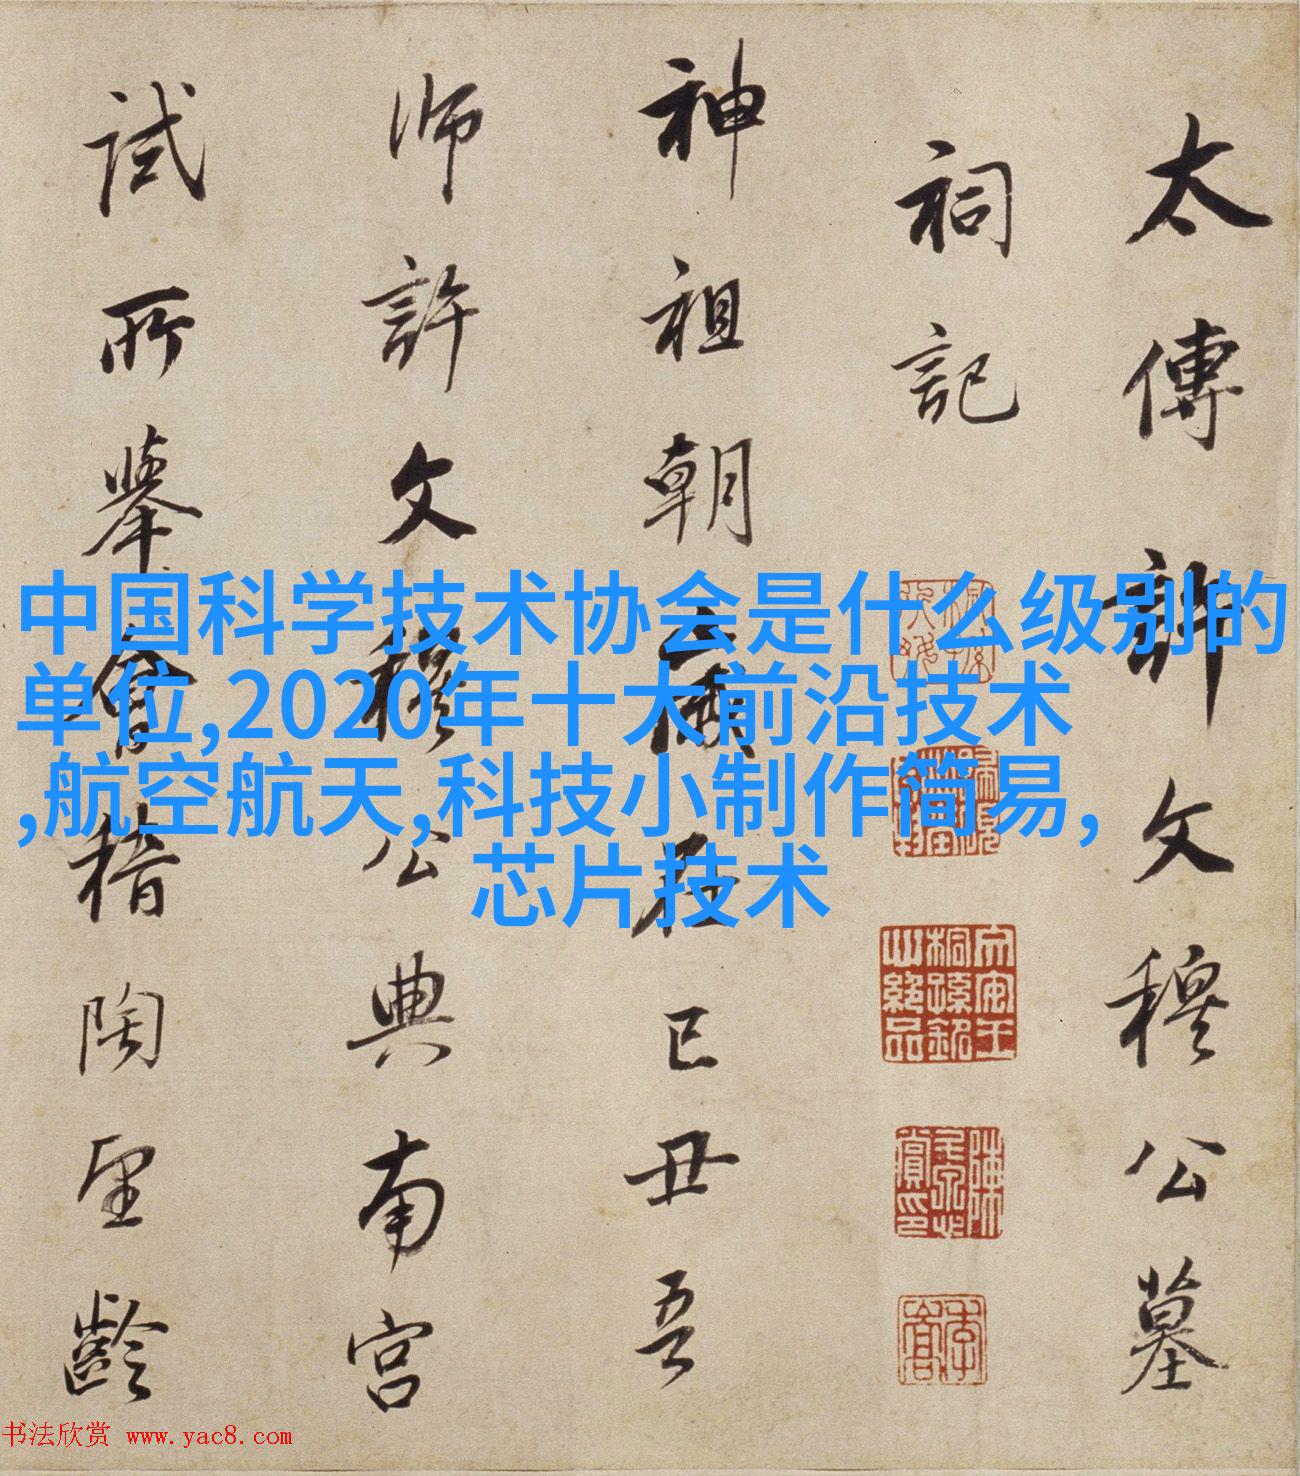 太傳許文穆公墓
祠記
神祖朝
巳丑吾
師許文穆公典南宮
試所舉會稽陶望齡
中国科学技术协会是什么级别的
单位,2020年十大前沿技术
,航空航天,科技小制作简易,
芯片技术
书法欣赏 www.yac8.com